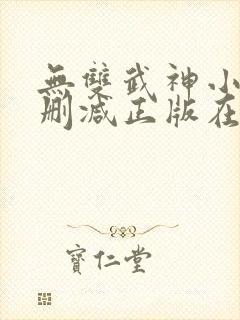 無雙武神小
刪減正版在
寶仁堂